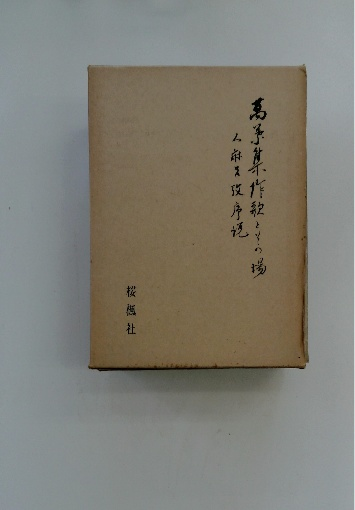 萬葉集作歌とその場
人麻呂攷序説
桜楓社